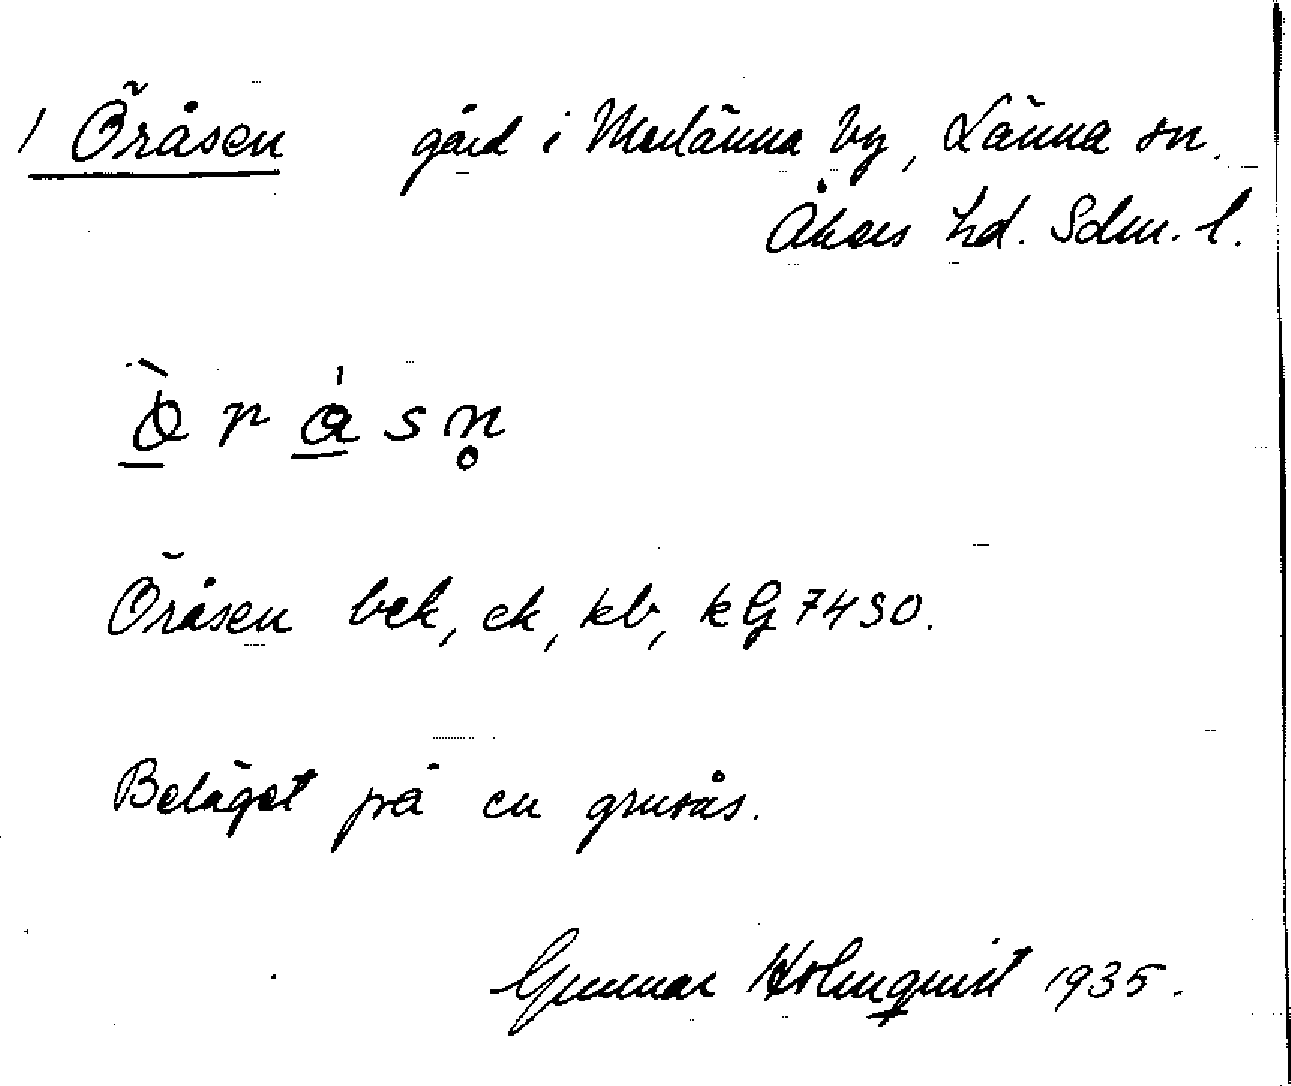 1 Öråsen gård i Merlänna by, Länna sn.
Åkers hd. Sdm. l.
Öråsen bek, ek, kb, kG 7430.
Beläget på en grusås.
Gunnar Holmquist 1935.